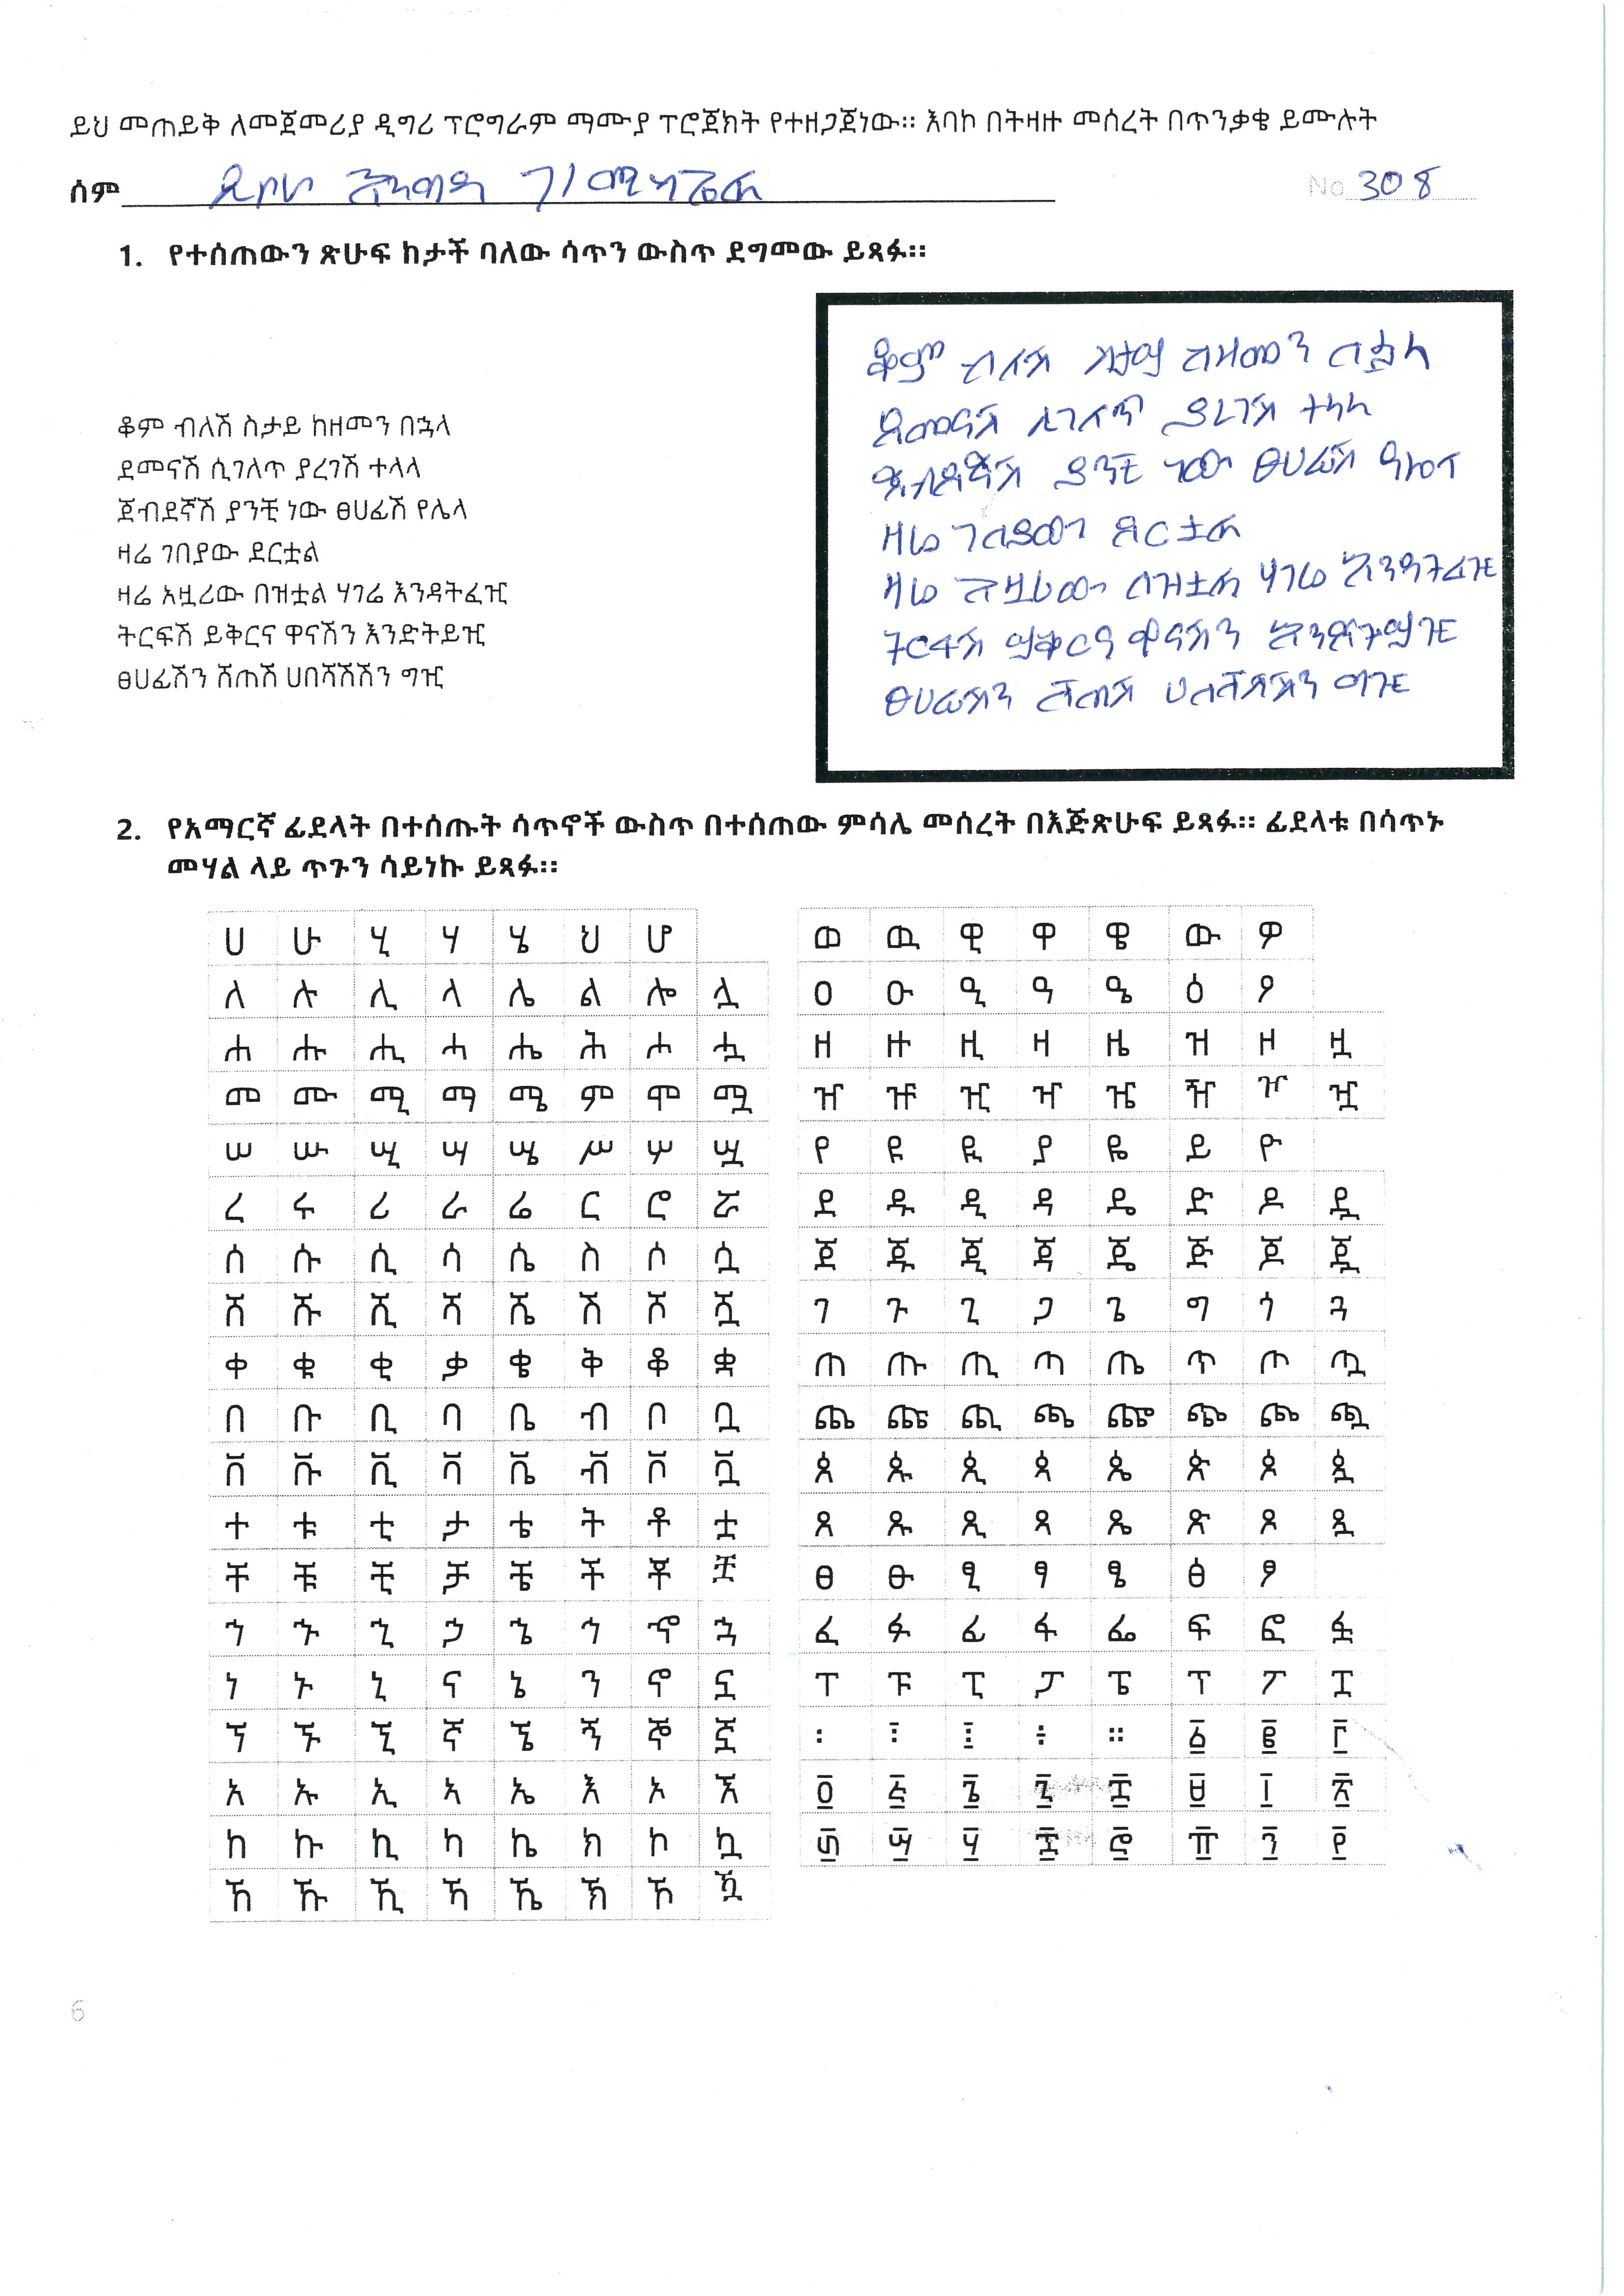 ይህ መጠይቅ ለመጀመሪያ ዲግሪ ፕሮግራም ማሙያ ፕሮጀክት የተዘጋጀነው። እባኮ በትዛዙ መሰረት በጥንቃቄ ይሙሉት
ሰም ዲቦራ እንግዳ ገ/ሚካኤል No 308
1. የተሰጠውን ጽሁፍ ከታች ባለው ሳጥን ውስጥ ደግመው ይጻፉ።
ቆም ብለሽ ስታይ ከዘመን በኋላ
ደመናሽ ሲገለጥ ያረገሽ ተላላ
ጀብደኛሽ ያንቺ ነው ፀሀፊሽ የሌላ
ዛሬ ገበያው ደርቷል
ዛሬ አዟሪው በዝቷል ሃገሬ እንዳትፈዢ
ትርፍሽ ይቅርና ዋናሽን እንድትይዢ
ፀሀፊሽን ሸጠሽ ሀበሻሽሽን ግዢ
ቆም ብለሽ ስታይ ከዘመን በኋላ
ደመናሽ ሲገለጥ ያረገሽ ተላላ
ጀብደኛሽ ያንቺ ነው ፀሀፊሽ
ዛሬ ገበያው ደርቷል
ዛሬ አዟሪው በዝቷል ሃገሬ እንዳትፈዢ
ትርፍሽ ይቅርና ዋናሽን እንድትይዢ
ፀሀፊሽን ሸጠሽ ሀበሻሽሽን ግዢ
2. የአማርኛ ፊደላት በተሰጡት ሳጥኖች ውስጥ በተሰጠው ምሳሌ መሰረት በእጅጽሁፍ ይጻፉ። ፊደላቱ በሳጥኑ
መሃል ላይ ጥጉን ሳይነኩ ይጻፉ።
ሀ ሁ ሂ ሃ ሄ ህ ሆ
ለ ሉ ሊ ላ ሌ ል ሎ ሏ
ሐ ሑ ሒ ሓ ሔ ሕ ሖ ሗ
መ ሙ ሚ ማ ሜ ም ሞ ሟ
ሠ ሡ ሢ ሣ ሤ ሥ ሦ ሧ
ረ ሩ ሪ ራ ሬ ር ሮ ሯ
ሰ ሱ ሲ ሳ ሴ ስ ሶ ሷ
ሸ ሹ ሺ ሻ ሼ ሽ ሾ ሿ
ቀ ቁ ቂ ቃ ቄ ቅ ቆ ቋ
በ ቡ ቢ ባ ቤ ብ ቦ ቧ
ቨ ቩ ቪ ቫ ቬ ቭ ቮ ቯ
ተ ቱ ቲ ታ ቴ ት ቶ ቷ
ቸ ቹ ቺ ቻ ቼ ች ቾ ቿ
ኀ ኁ ኂ ኃ ኄ ኅ ኆ ኋ
ነ ኑ ኒ ና ኔ ን ኖ ኗ
ኘ ኙ ኚ ኛ ኜ ኝ ኞ ኟ
አ ኡ ኢ ኣ ኤ እ ኦ ኧ
ከ ኩ ኪ ካ ኬ ክ ኮ ኳ
ኸ ኹ ኺ ኻ ኼ ኽ ኾ ዃ
ወ ዉ ዊ ዋ ዌ ው ዎ
ዐ ዑ ዒ ዓ ዔ ዕ ዖ
ዘ ዙ ዚ ዛ ዜ ዝ ዞ ዟ
ዠ ዡ ዢ ዣ ዤ ዥ ዦ ዧ
የ ዩ ዪ ያ ዬ ይ ዮ
ደ ዱ ዲ ዳ ዴ ድ ዶ ዷ
ጀ ጁ ጂ ጃ ጄ ጅ ጆ ጇ
ገ ጉ ጊ ጋ ጌ ግ ጎ ጓ
ጠ ጡ ጢ ጣ ጤ ጥ ጦ ጧ
ጨ ጩ ጪ ጫ ጬ ጭ ጮ ጯ
ጰ ጱ ጲ ጳ ጴ ጵ ጶ ጷ
ጸ ጹ ጺ ጻ ጼ ጽ ጾ ጿ
ፀ ፁ ፂ ፃ ፄ ፅ ፆ
ፈ ፉ ፊ ፋ ፌ ፍ ፎ ፏ
ፐ ፑ ፒ ፓ ፔ ፕ ፖ ፗ
፡ ፣ ፤ ፥ ። ፩ ፪ ፫
፬ ፭ ፮ ፯ ፰ ፱ ፲ ፳
፴ ፵ ፶ ፷ ፸ ፹ ፺ ፻
6